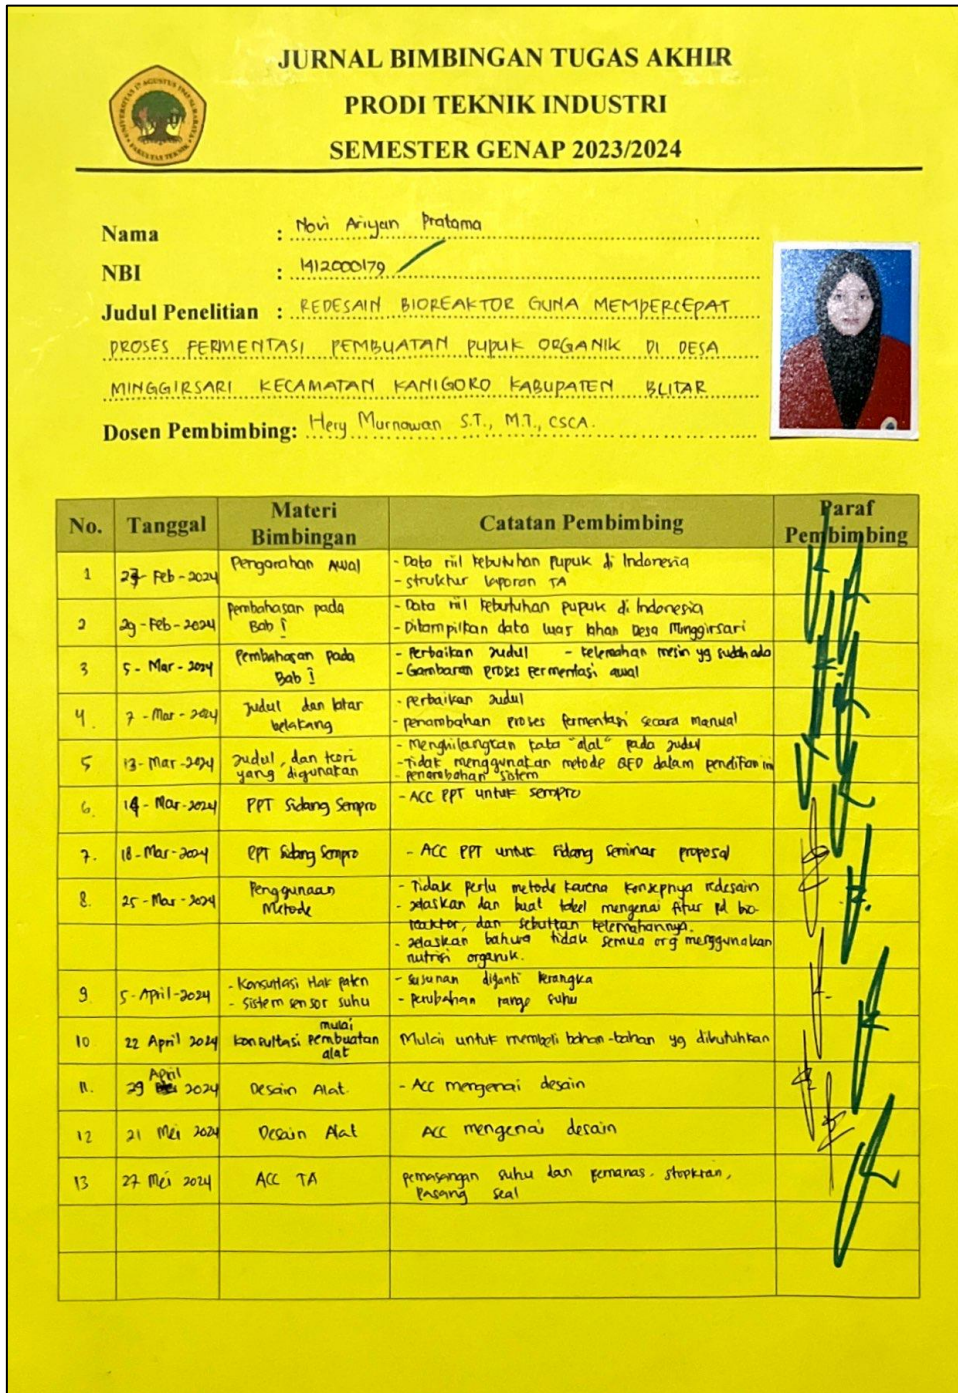 JURNAL BIMBINGAN TUGAS AKHIR
PRODI TEKNIK INDUSTRI
SEMESTER GENAP 2023/2024
UNIVERSITAS 17 AGUSTUS 1945 SURABAYA
FAKULTAS TEKNIK
Nama : Novi Ariyan Pratama
NBI : 1412000179
Judul Penelitian : REDESAIN BIOREAKTOR GUNA MEMPERCEPAT
PROSES FERMENTASI PEMBUATAN PUPUK ORGANIK DI DESA
MINGGIRSARI KECAMATAN KANIGORO KABUPATEN BLITAR
Dosen Pembimbing: Hery Murnawan S.T., M.T., CSCA.
No. Tanggal Materi Bimbingan Catatan Pembimbing Paraf Pembimbing
1 27 - Feb - 2024 Pengarahan Awal - Data riil kebutuhan pupuk di Indonesia
- struktur laporan TA
2 29 - Feb - 2024 Pembahasan pada Bab I - Data riil kebutuhan pupuk di Indonesia
- Ditampilkan data luas lahan Desa Minggirsari
3 5 - Mar - 2024 Pembahasan pada Bab I - Perbaikan Judul - kelemahan mesin yg sudah ada
- Gambaran proses fermentasi awal
4. 7 - Mar - 2024 Judul dan latar belakang - perbaikan Judul
- penambahan proses fermentasi secara manual
5 13 - Mar - 2024 Judul, dan teori yang digunakan - Menghilangkan kata "alat" pada judul
- Tidak menggunakan metode QFD dalam penelitian ini
- penambahan sistem
6. 14 - Mar - 2024 PPT Sidang Sempro - ACC PPT untuk sempro
7. 18 - Mar - 2024 PPT Sidang Sempro - ACC PPT untuk sidang seminar proposal
8. 25 - Mar - 2024 Penggunaan Metode - Tidak perlu metode karena konsepnya redesain
- Jelaskan dan buat tabel mengenai fitur pd bio-
reaktor, dan sebutkan kelemahannya.
- Jelaskan bahwa tidak semua org menggunakan
nutrisi organik.
9. 5 - April - 2024 - Konsultasi Hak paten - susunan diganti kerangka
- sistem sensor suhu - perubahan range suhu
10 22 April 2024 konsultasi mulai pembuatan alat Mulai untuk membeli bahan-bahan yg dibutuhkan
11. 29 April 2024 Desain Alat. - ACC mengenai desain
12 21 Mei 2024 Desain Alat ACC mengenai desain
13 27 Mei 2024 ACC TA pemasangan suhu dan pemanas. stopkran,
pasang seal